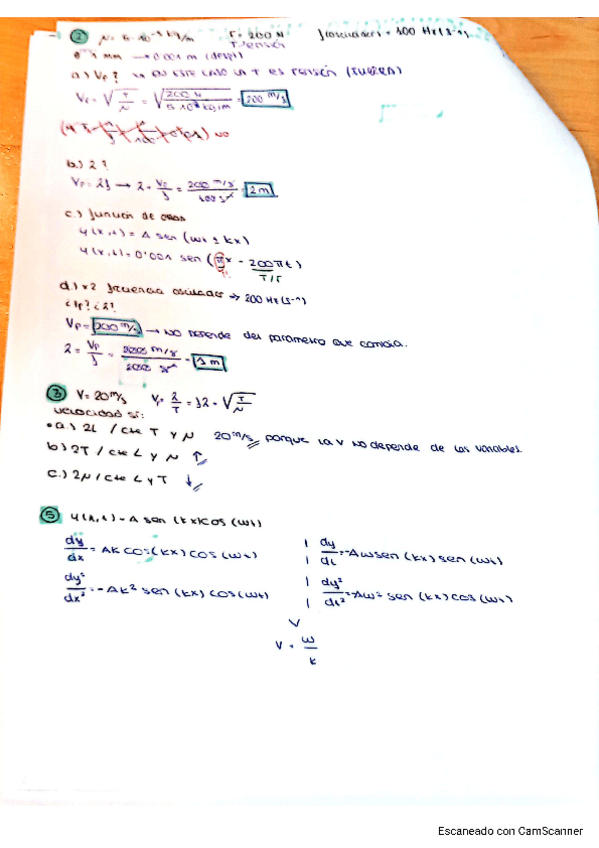 ② μ = 5·10⁻³ kg/m T = 200 N foscilador = 100 Hz (s⁻¹)
Tensión
1 mm → 0'001 m (despl)
a.) Vp? → en este caso la T es tensión (fuerza)
Vp = √(T/μ) = √(200 N / 5·10⁻³ kg/m) = 200 m/s
NO
b.) λ?
Vp = λf → λ = Vp/f = 200 m/s / 100 s⁻¹ = 2 m
c.) función de onda
y(x,t) = A sen (ωt ± kx)
y(x,t) = 0'001 sen (πx - 200πt)
d.) x2 frecuencia oscilador → 200 Hz (s⁻¹)
¿Vp? ¿λ?
Vp = 200 m/s → no depende del parametro que cambia.
λ = Vp/f = = 1 m
③ V = 20 m/s Vp = λ/T = fλ = √(T/μ)
velocidad si:
• a.) 2L / cte T y μ 20 m/s, porque la v no depende de las variables
b.) 2T / cte L y μ ↑
c.) 2μ / cte L y T ↓
⑤ y(x,t) = A sen (kx) cos (ωt)
dy/dx = AK cos (kx) cos (ωt) | dy/dt = -Aω sen (kx) sen (ωt)
dy²/dx² = -Ak² sen (kx) cos (ωt) | dy²/dt² = -Aω² sen (kx) cos (ωt)
v = ω/k
Escaneado con CamScanner